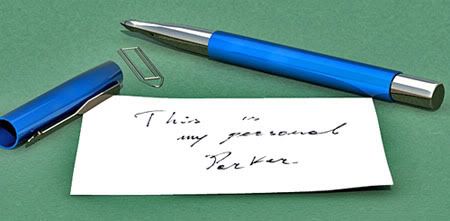 This is
my personal
Parker.